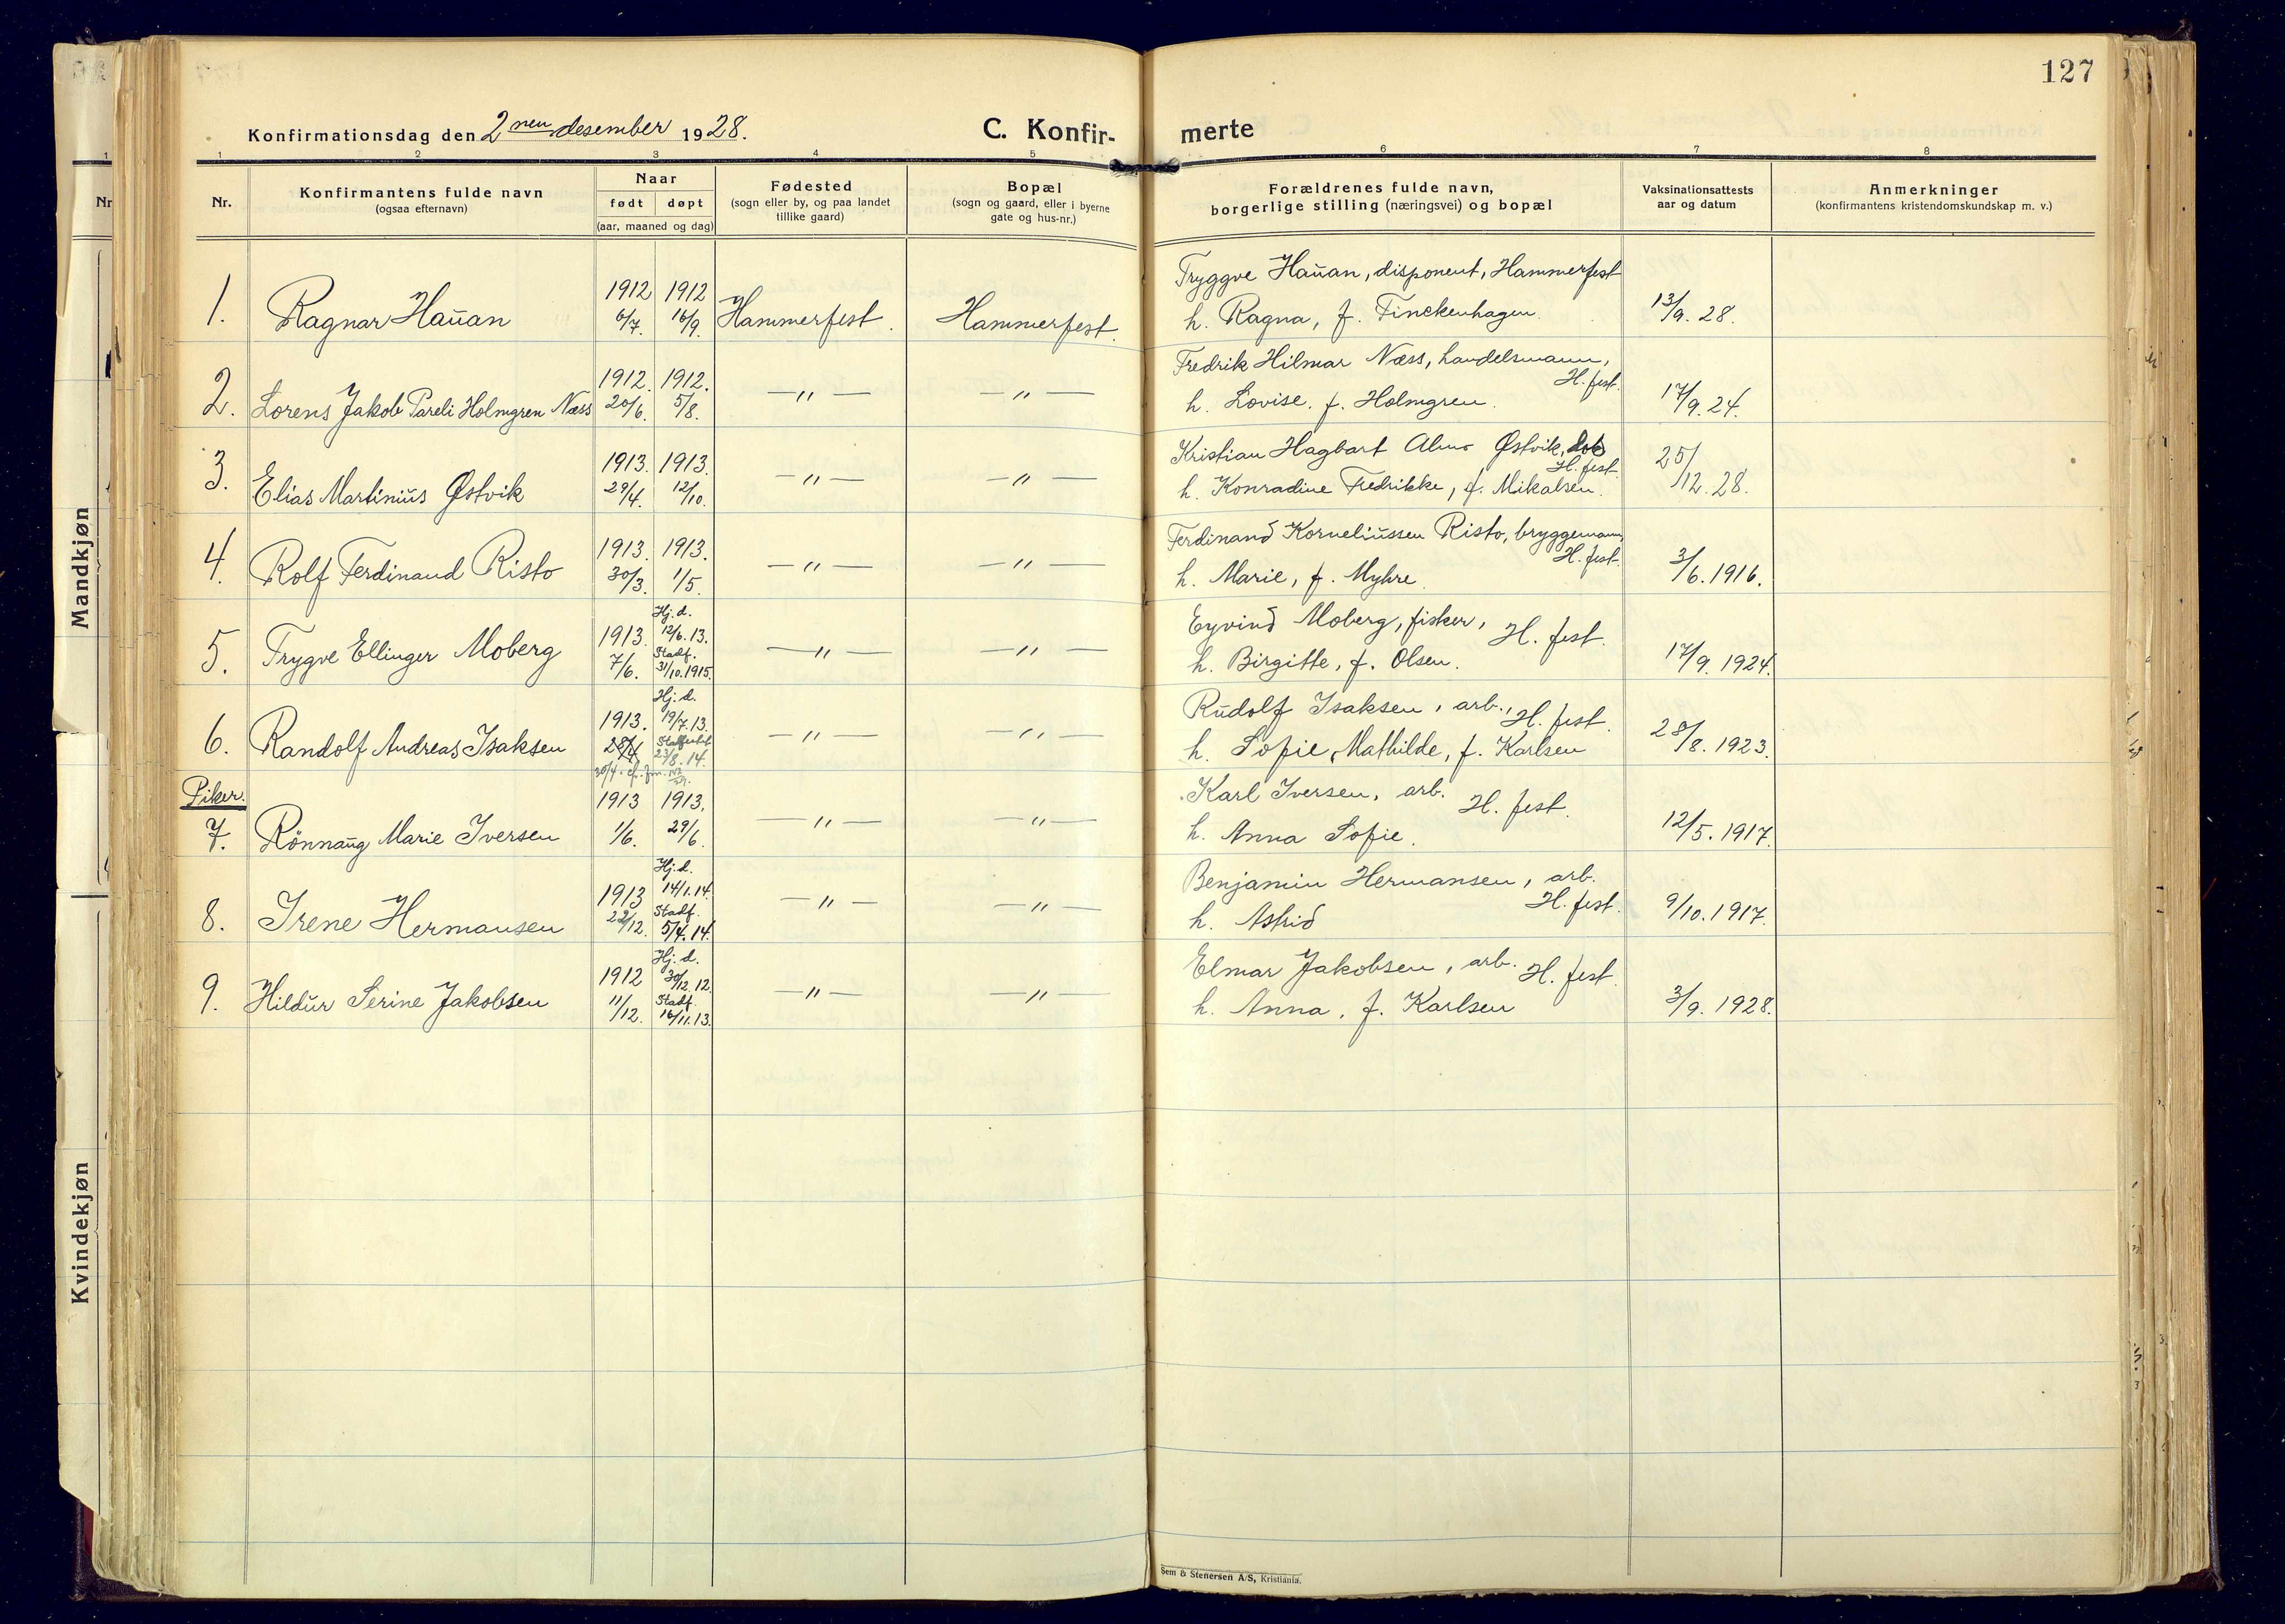 127
Konfirmationsdag den 2nen desember 1928.
C. Konfir-
merte
1 2 3 4 5 6 7 8
Nr.
Konfirmantens fulde navn
(ogsaa efternavn)
Naar
født døpt
(aar, maaned og dag)
Fødested
(sogn eller by, og paa landet
tillike gaard)
Bopæl
(sogn og gaard, eller i byerne
gate og hus-nr.)
Forældrenes fulde navn,
borgerlige stilling (næringsvei) og bopæl
Vaksinationsattests
aar og datum
Anmerkninger
(konfirmantens kristendomskundskap m. v.)
1. Ragnar Haŭan 1912 6/7. 1912 16/9. Hammerfest. Hammerfest.
Tryggve Haŭan, disponent, Hammerfest
h. Ragna, f. Finckenhagen. 13/9. 28.
2. Lorens Jakob Pareli Holmgren Næss 1912. 20/6. 1912. 5/8. —"— —"—
Fredrik Hilmar Næss, handelsmann,
H. fest.
h. Lovise. f. Holmgren. 17/9. 24.
3. Elias Martiniŭs Østvik 1913. 29/4. 1913. 12/10. —"— —"—
Kristian Hagbart Østvik,
H. fest.
h. Konradine Fredrikke, f. Mikalsen. 25/12. 28.
4. Rolf Ferdinand Risto 1913. 30/3. 1913. 1/5. —"— —"—
Ferdinand Korneliŭssen Risto, bryggemann,
H. fest.
h. Marie, f. Myhre. 3/6. 1916.
5. Trygve Ellinger Moberg 1913. 7/6. Hj. d. 12/6. 13. Stadf. 31/10. 1915. —"— —"—
Eyvind Moberg, fisker, H. fest.
h. Birgitte, f. Olsen. 17/9. 1924.
6. Randolf Andreas Isaksen 1913. 28/4 Hj. d. 19/7. 13. 23/8. 14. —"— —"—
30/4.
Rŭdolf Isaksen, arb., H. fest.
h. Sofie Mathilde, f. Karlsen 28/8. 1923.
Piker.
7. Rönnaŭg Marie Iversen 1913 1/6. 1913. 29/6. —"— —"—
Karl Iversen, arb. H. fest.
h. Anna Sofie. 12/5. 1917.
8. Irene Hermansen 1913 22/12. Hj. d. 14/1. 14. Stadf. 5/4. 14. —"— —"—
Benjamin Hermansen, arb.
H. fest.
h. Astrid 9/10. 1917.
9. Hildŭr Serine Jakobsen 1912 11/12. Hj. d. 30/12. 12. Stadf. 16/11. 13. —"— —"—
Elmar Jakobsen, arb. H. fest.
h. Anna, f. Karlsen 3/9. 1928.
Mandkjøn
Kvindekjøn
1
Nr
Sem & Stenersen A/S, Kristiania.